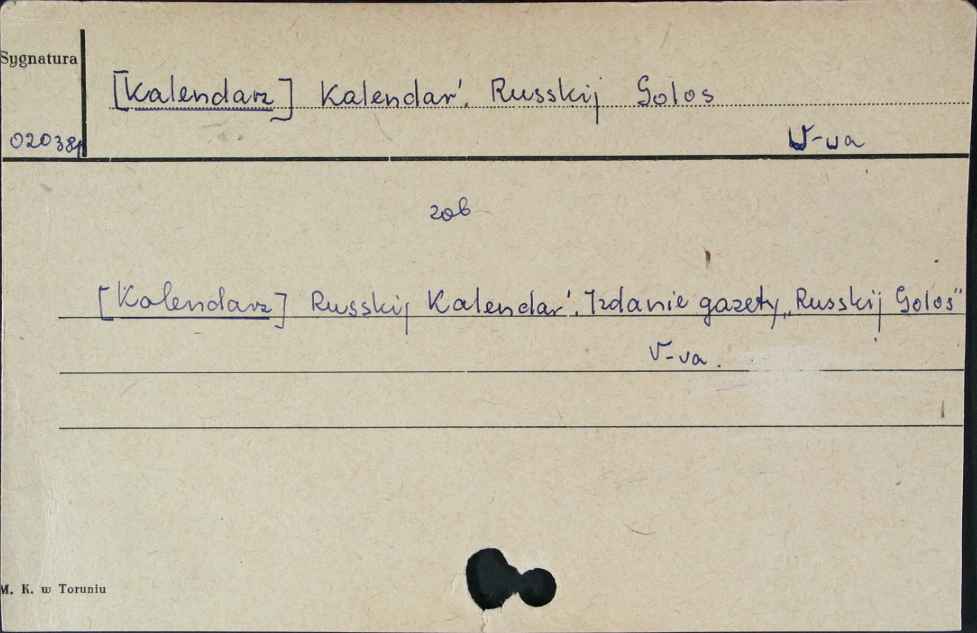 Sygnatura
[Kalendarz] Kalendar'. Russkij Golos
020381
W-wa
zob
[Kalendarz] Russkij Kalendar'. Izdanie gazety „Russkij Golos"
V-va.
M. K. w Toruniu